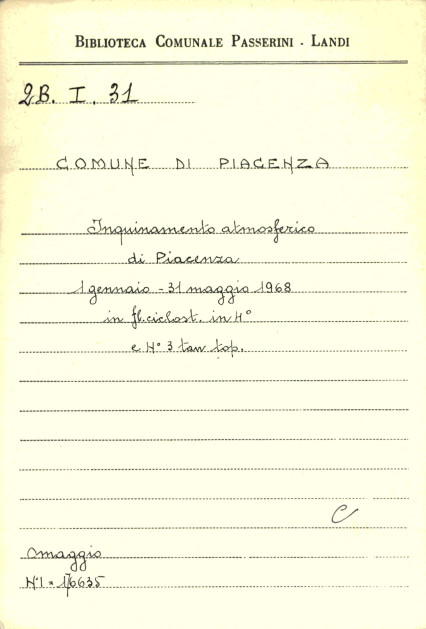 BIBLIOTECA COMUNALE PASSERINI - LANDI
2B. I. 31
COMUNE DI PIACENZA
Inquinamento atmosferico
di Piacenza
1 gennaio - 31 maggio 1968
in fl. ciclost. in 4°
e N° 3 tav top.
C
Omaggio
N° I = 176635